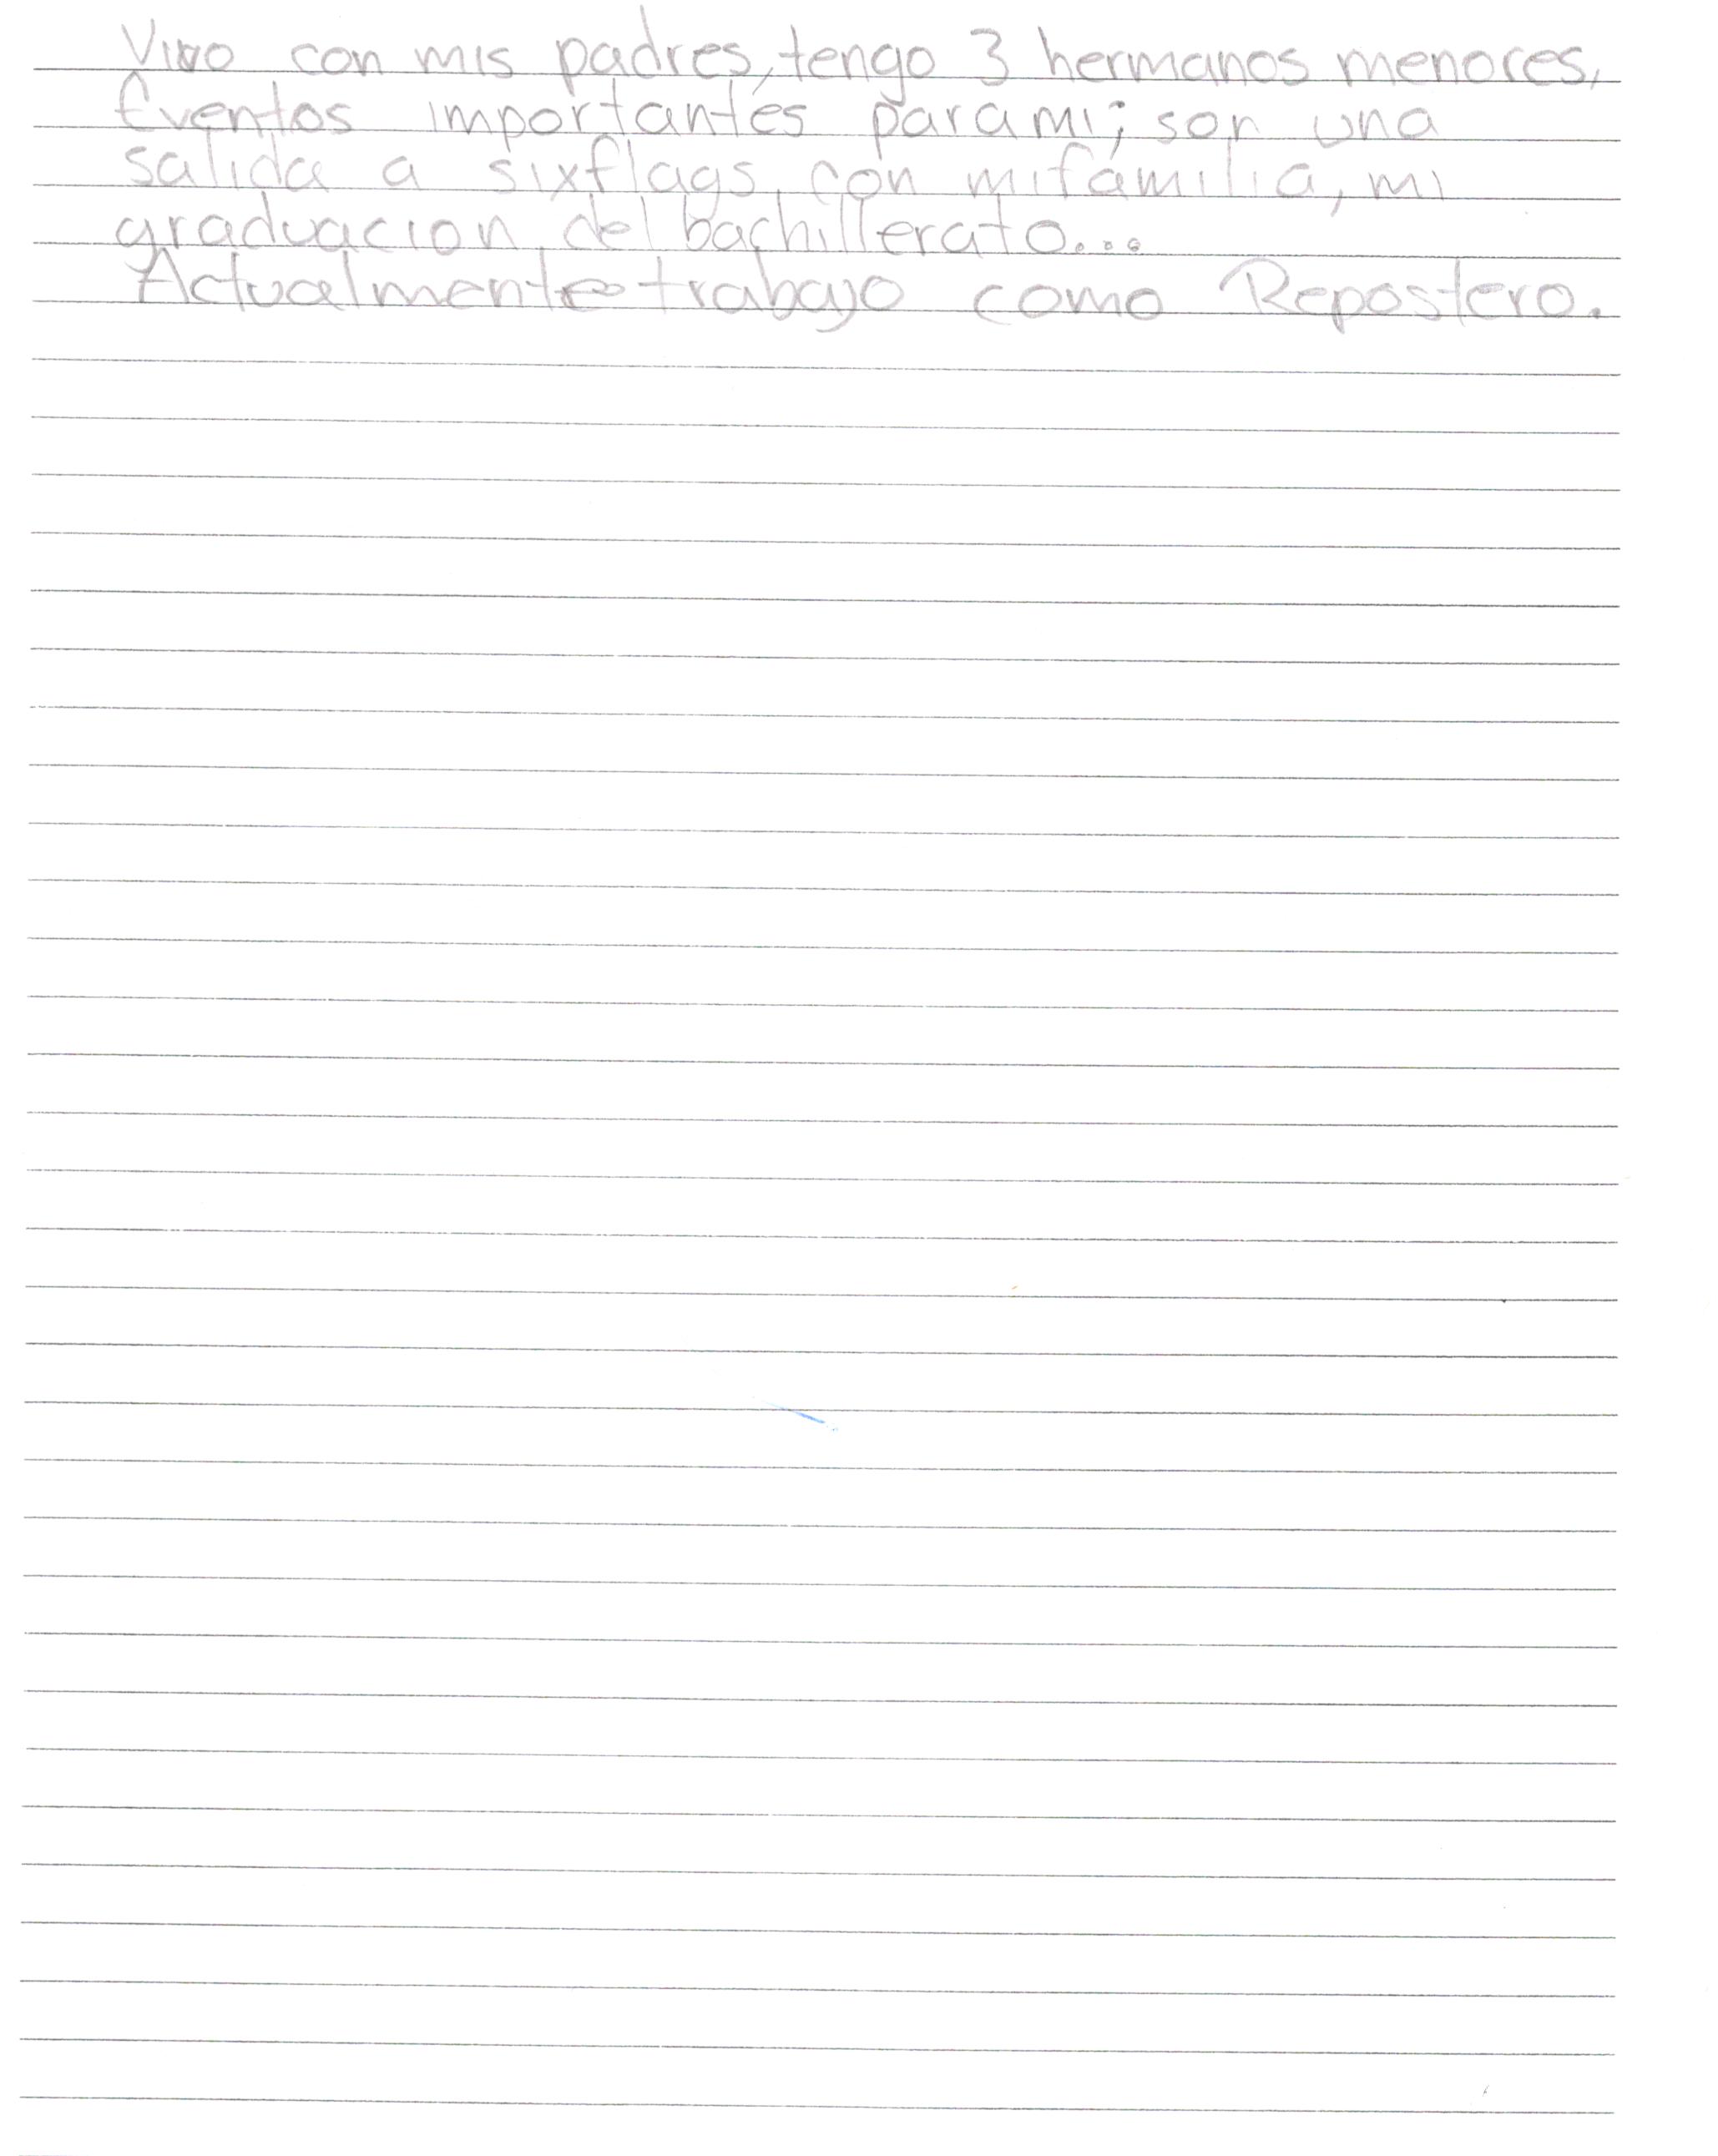 Vivo con mis padres, tengo 3 hermanos menores,
Eventos importantes para mi; son una
salida a sixflags, con mi familia, mi
graduacion del bachillerato...
Actualmente trabajo como Repostero.